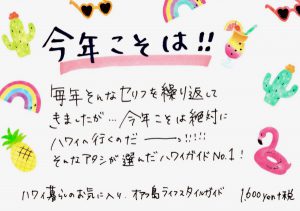 今年こそは!!
毎年そんなセリフを繰り返して
きましたが…今年こそは絶対に
ハワイへ行くのだーっ!!!!!
そんなアタシが選んだハワイガイドNo.1!
ハワイ暮らしのお気に入り。オアフ島ライフスタイルガイド
1,600yen+税